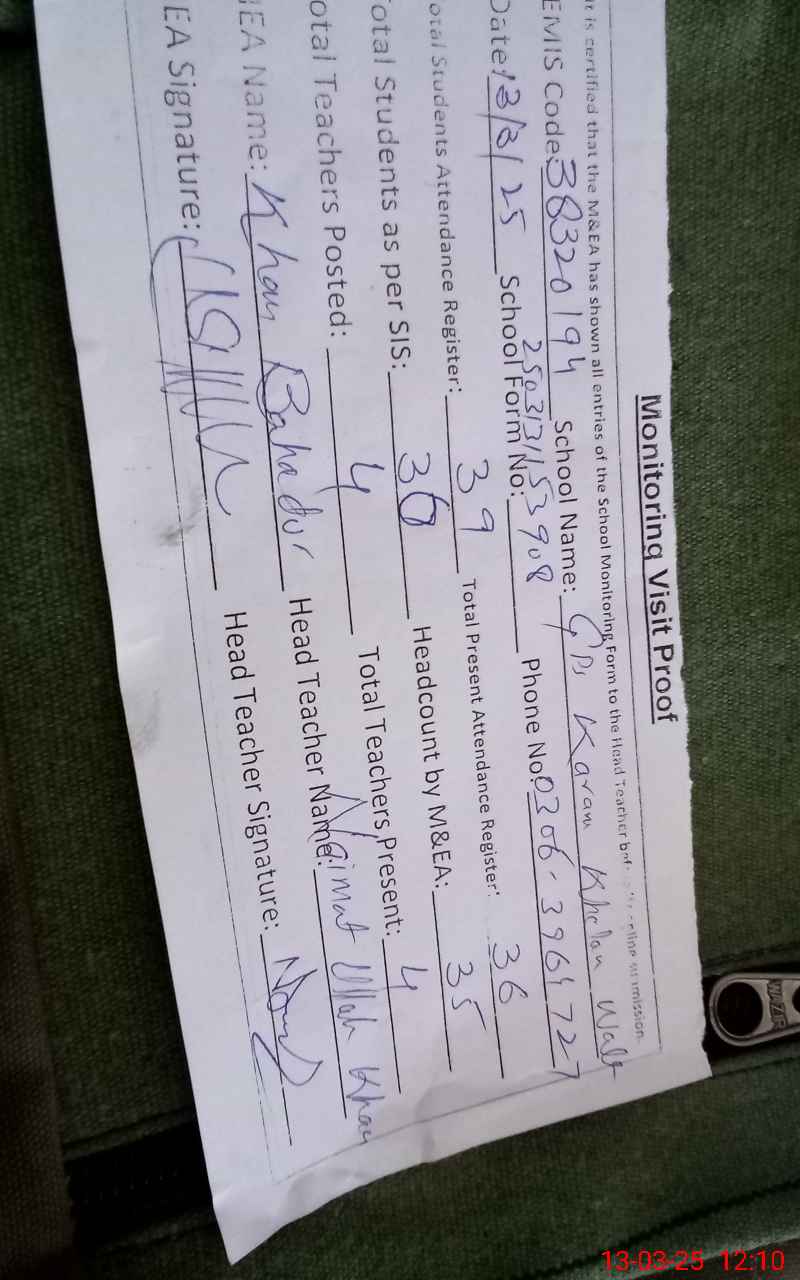 Monitoring Visit Proof
It is certified that the M&EA has shown all entries of the School Monitoring Form to the Head Teacher before online submission.
EMIS Code: 38320194 School Name: GPS Karam Khelan Wala
Date: 13/3/25 School Form No: 25031315 3908 Phone No: 0306-3964727
otal Students Attendance Register: 39 Total Present Attendance Register: 36
otal Students as per SIS: 36 Headcount by M&EA: 35
otal Teachers Posted: 4 Total Teachers Present: 4
EA Name: Khan Bahadur Head Teacher Name: Naimat Ullah Khan
EA Signature: Head Teacher Signature:
WAZIR
13-03-25 12:10